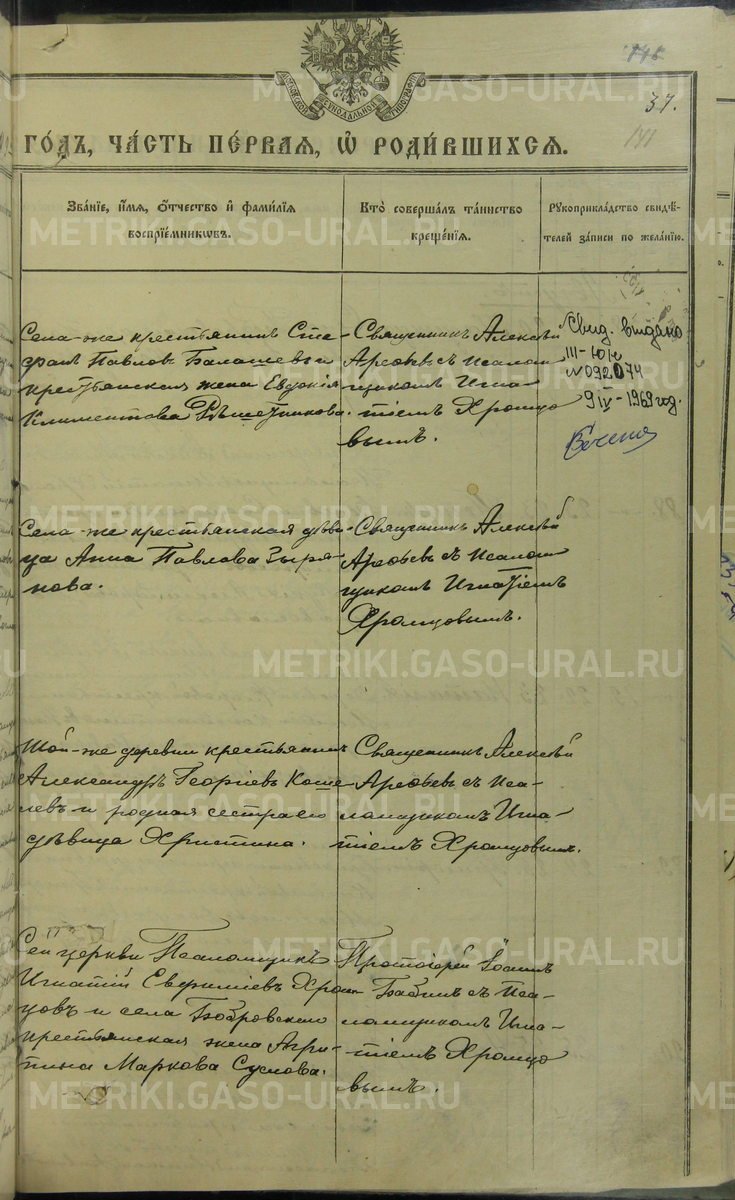 МОСКОВСКОЙ СѴНОДАЛЬНОЙ ТИПОГРАФІИ
37.
ГО́ДЪ, ЧА́СТЬ ПЕ́РВАѦ, Ѡ҆ РОДИ́ВШИХСѦ.
Зва́нїе, и҆́мѧ, ѻ҆́тчество и҆ фами́лїѧ
воспрїе́мникѡвъ.
Кто̀ соверша́лъ та́инство
креще́нїѧ.
Рꙋкоприкла́дство свидѣ́-
телей за́писи по жела́нїю.
METRIKI.GASO-URAL.RU
Села-же крестьянинъ Сте-
фанъ Павловъ Балашевъ и
крестьянская жена Евдокія
Климентова Рѣшетникова.
Священникъ Алексѣй
Арефьевъ съ псалом-
щикомъ Игна-
тіемъ Хромцо
вымъ.
Свид. выдано
III-ЮЛ
№ 092074
9 IV - 1969 год.
Села-же крестьянская дѣви-
ца Анна Павлова Зыря-
нова.
Священникъ Алексѣй
Арефьевъ съ псалом-
щикомъ Игнатіемъ
Хромцовымъ.
METRIKI.GASO-URAL.RU
Той-же деревни крестьянинъ
Александръ Георгіевъ Коше
левъ и родная сестра его
дѣвица Христина.
Священникъ Алексѣй
Арефьевъ съ пса-
ломщикомъ Игна-
тіемъ Хромцовымъ.
METRIKI.GASO-URAL.RU
Сей церкви Псаломщикъ
Игнатій Евфиміевъ Хром-
цовъ и села Бобровскаго
крестьянская жена Агри-
пина Маркова Суслова.
Протоіерей Іоаннъ
Бабинъ съ пса-
ломщикомъ Игна-
тіемъ Хромцо
вымъ.
METRIKI.GASO-URAL.RU